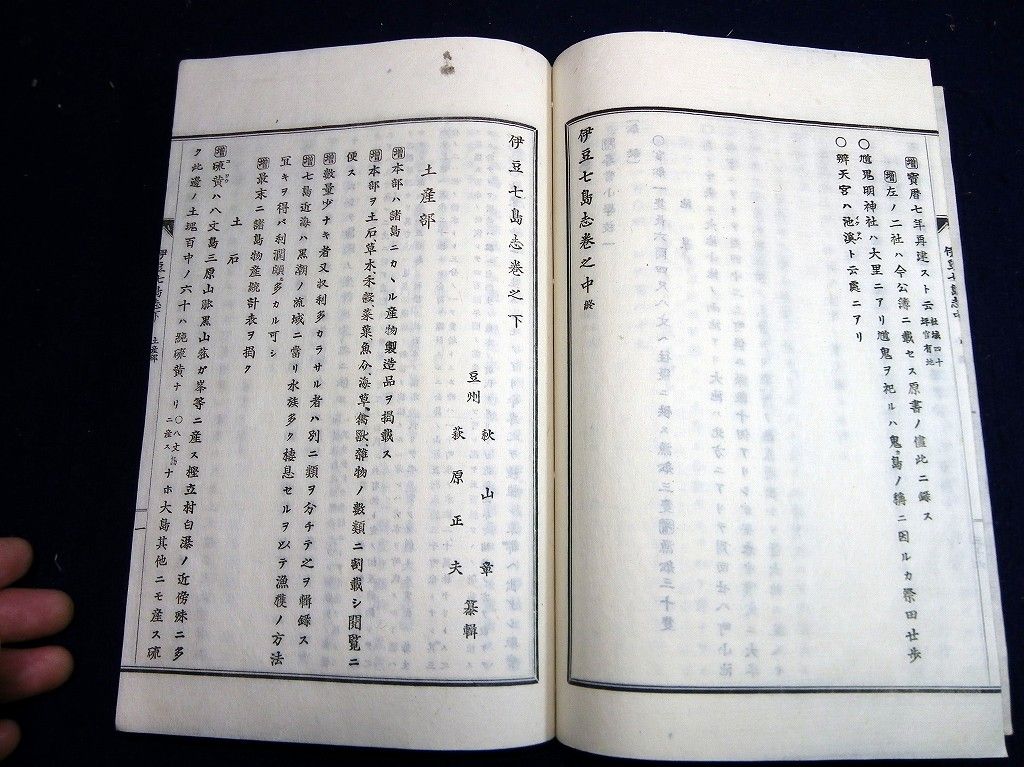 ㊞寶暦七年再建スト云 社域四十坪官有地
㊞左ノ二社ハ今公簿ニ載セス原書ノ儘此ニ録ス
〇尴鬼明神社ハ大里ニアリ尴鬼ヲ祀ルハ鬼ヶ島ノ稱ニ因ルカ祭田廿歩
〇辨天宮ハ池澳ト云處ニアリ
伊豆七島志卷之中終
伊豆七島志卷之下
豆州 秋山章
萩原正夫 纂輯
土産部
增本部ハ諸島ニカヽル産物製造品ヲ揭載ス
增本部ヲ土石草木禾穀、菜菓魚介、海草、禽獸、雜物ノ數類ニ割載シ閲覧ニ
便ス
增數量少ナキ者又収利多カラサル者ハ別ニ類ヲ分チテ之ヲ輯録ス
增七島近海ハ黒潮ノ流域ニ當リ水族多ク棲息セルヲ以テ漁獲ノ方法
宜キヲ得バ利潤頗多カル可シ
增最末ニ諸島物産統計表ヲ揭ク
土石
增硫黄ハ八丈島三原山 黒山 ガ峯等ニ産ス樫立村白瀑ノ近傍殊ニ多
ク此邊ノ土塊百中ノ六十ハ純硫黄ナリ 〇八丈島ニ産ス ナホ大島其他ニモ産ス硫
伊豆七島志下 土産部